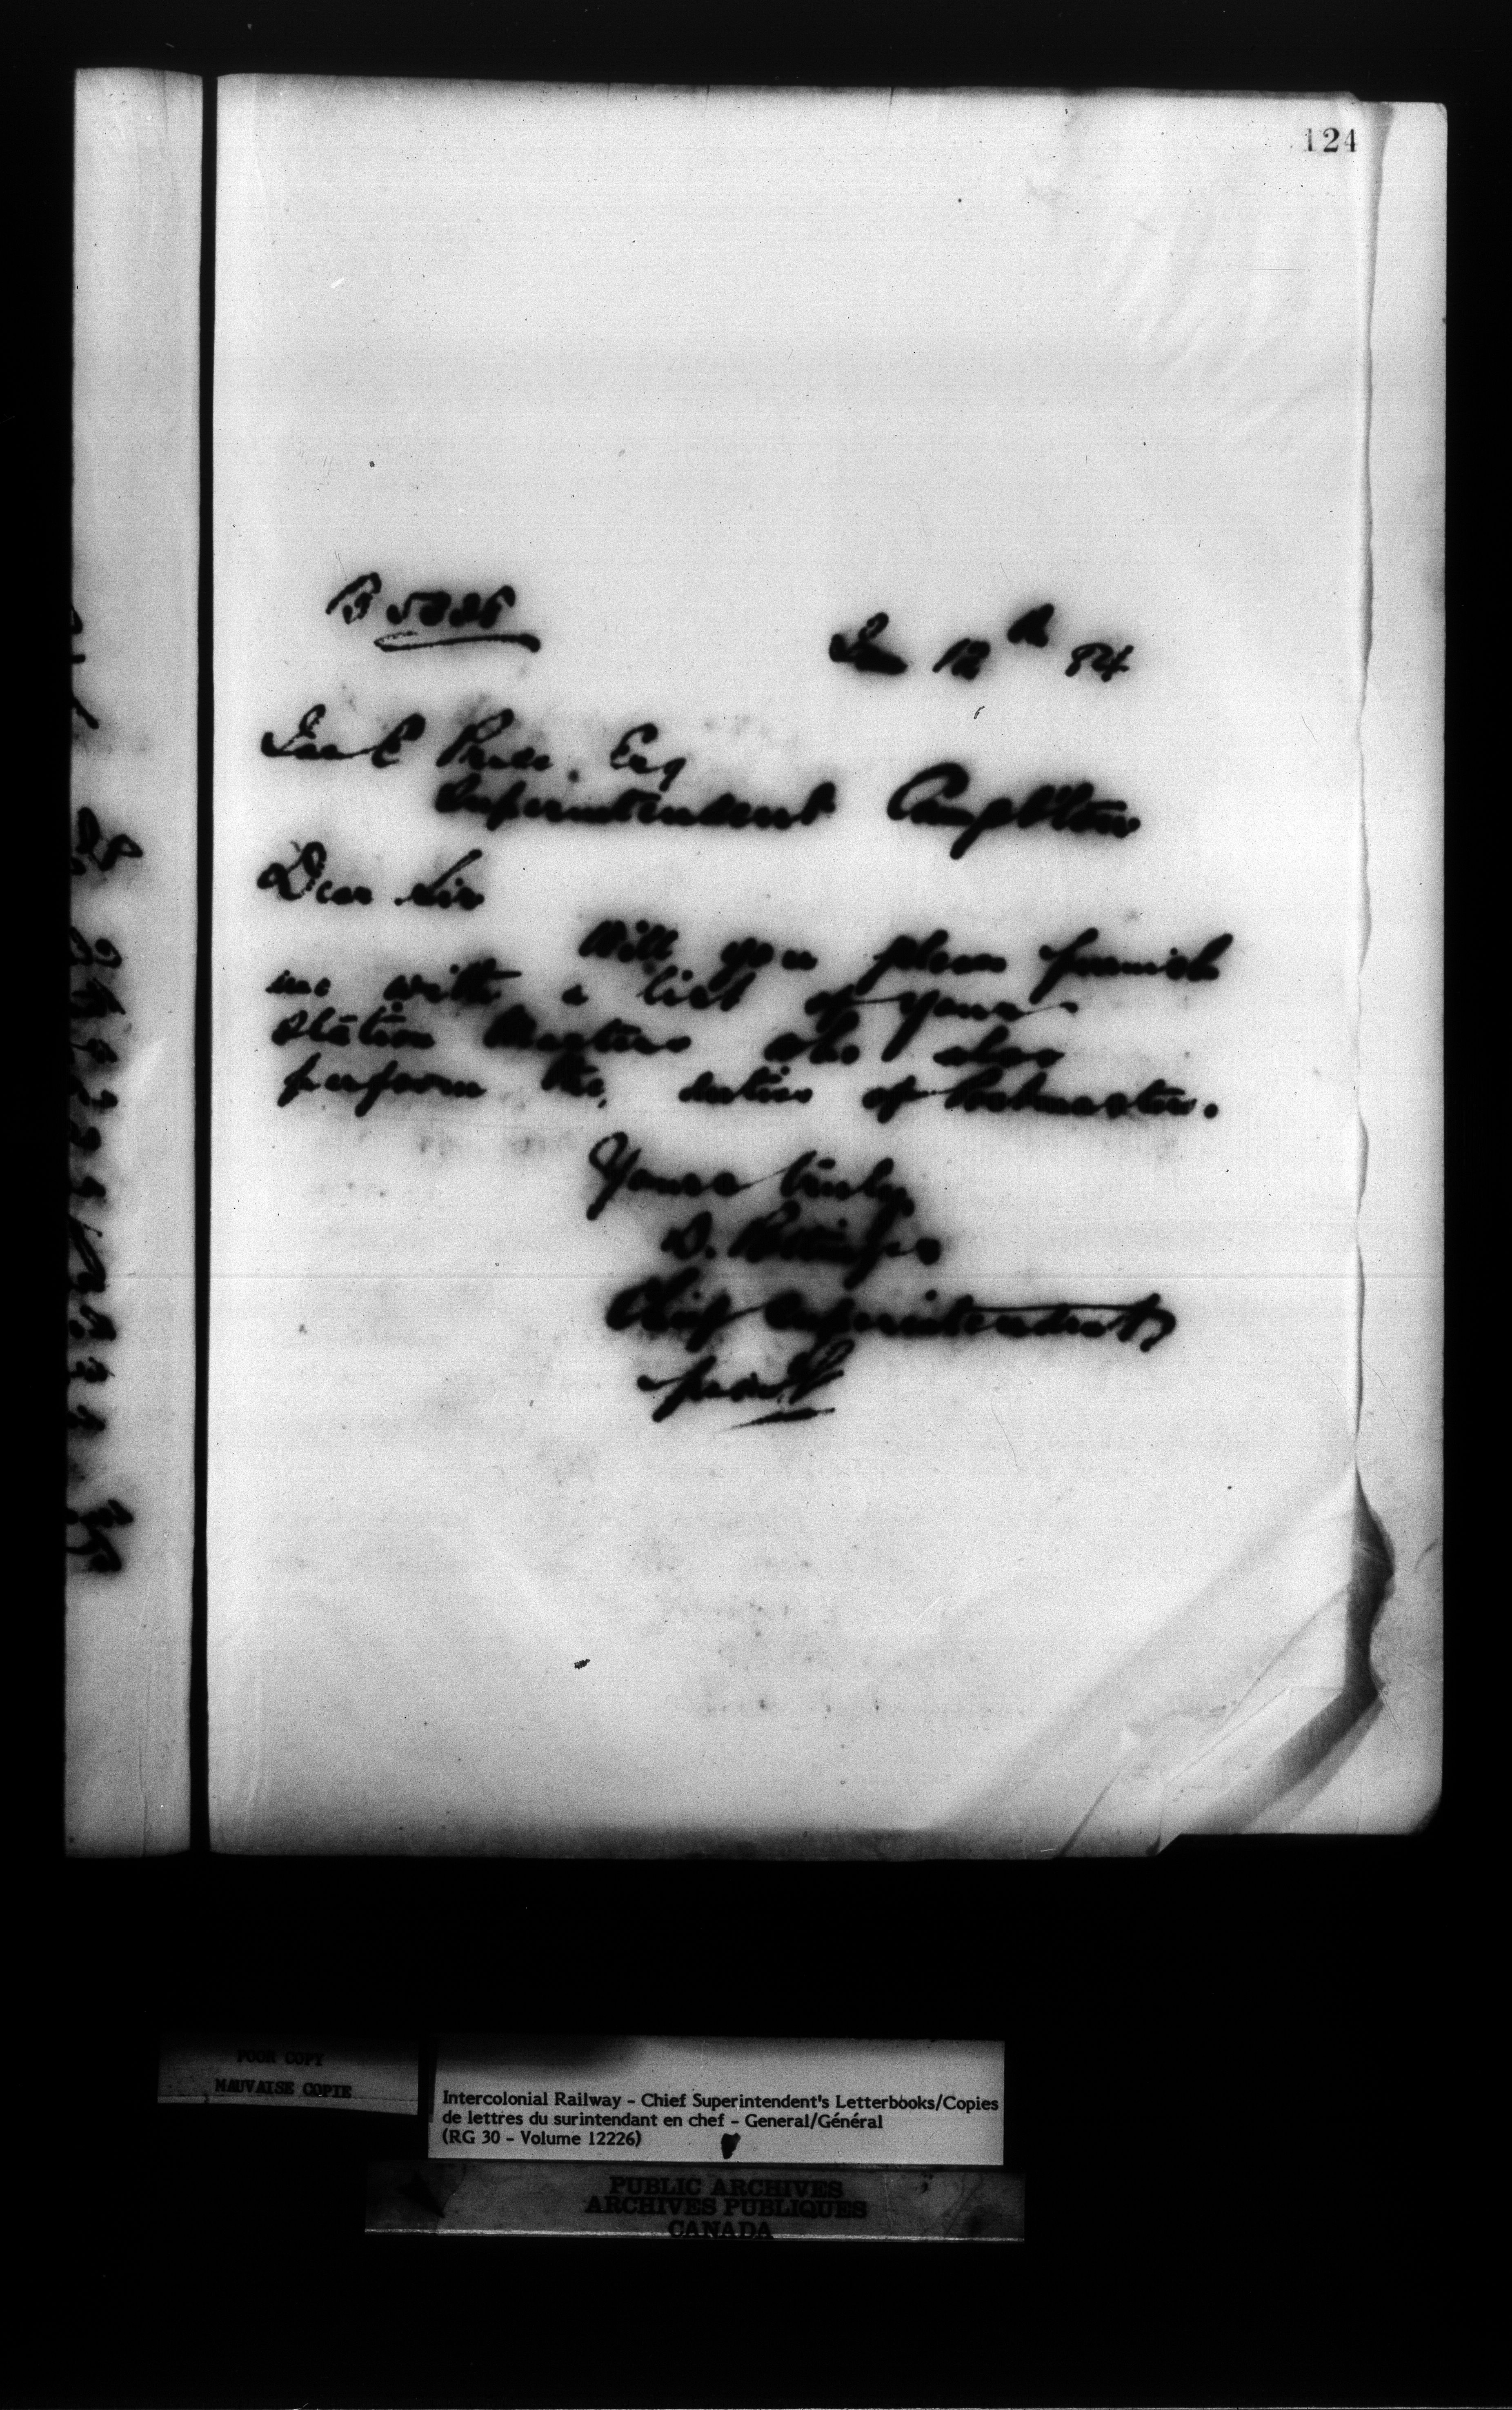 124
12th 84
Price. Esq
Superintendent Campbellton
Dear Sir
Will you please furnish
me with a list of your
Station Masters who also
perform the duties of Postmasters.
Yours truly
D. Pottinger
Chief Superintendent
POOR COPY
MAUVAISE COPIE
Intercolonial Railway - Chief Superintendent's Letterbooks/Copies
de lettres du surintendant en chef - General/Général
(RG 30 - Volume 12226)
PUBLIC ARCHIVES
ARCHIVES PUBLIQUES
CANADA